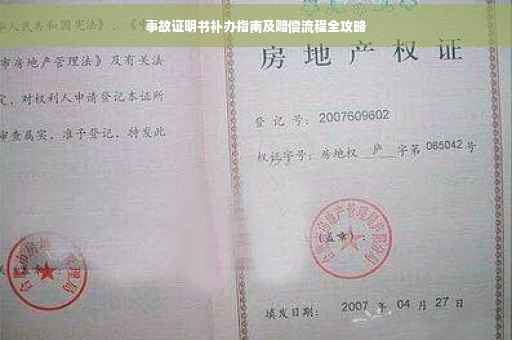 事故证明书补办指南及赔偿流程全攻略
人民共和国宪法》、《中
市房地产管理法》及有关法
定，对权利人申请登记本证所
审查属实，准予登记，特发此
房地产权证
登记号：2007609602
权证字号：房地权 庐 字第 085042 号
(盖章)：
填发日期：2007 年 04 月 27 日